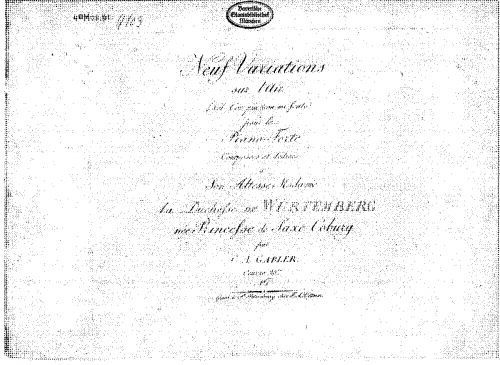 4 Mus.pr.
4103
Bayerische
Staatsbibliothek
München
Neuf Variations
sur l'Air
pour le
Piano-Forte
Composées et dediées
à
Son Altesse Madame
la Duchesse de WÜRTEMBERG
née Princesse de Saxe Coburg
par
C. A. GABLER.
Oeuvre
à St. Petersburg chez